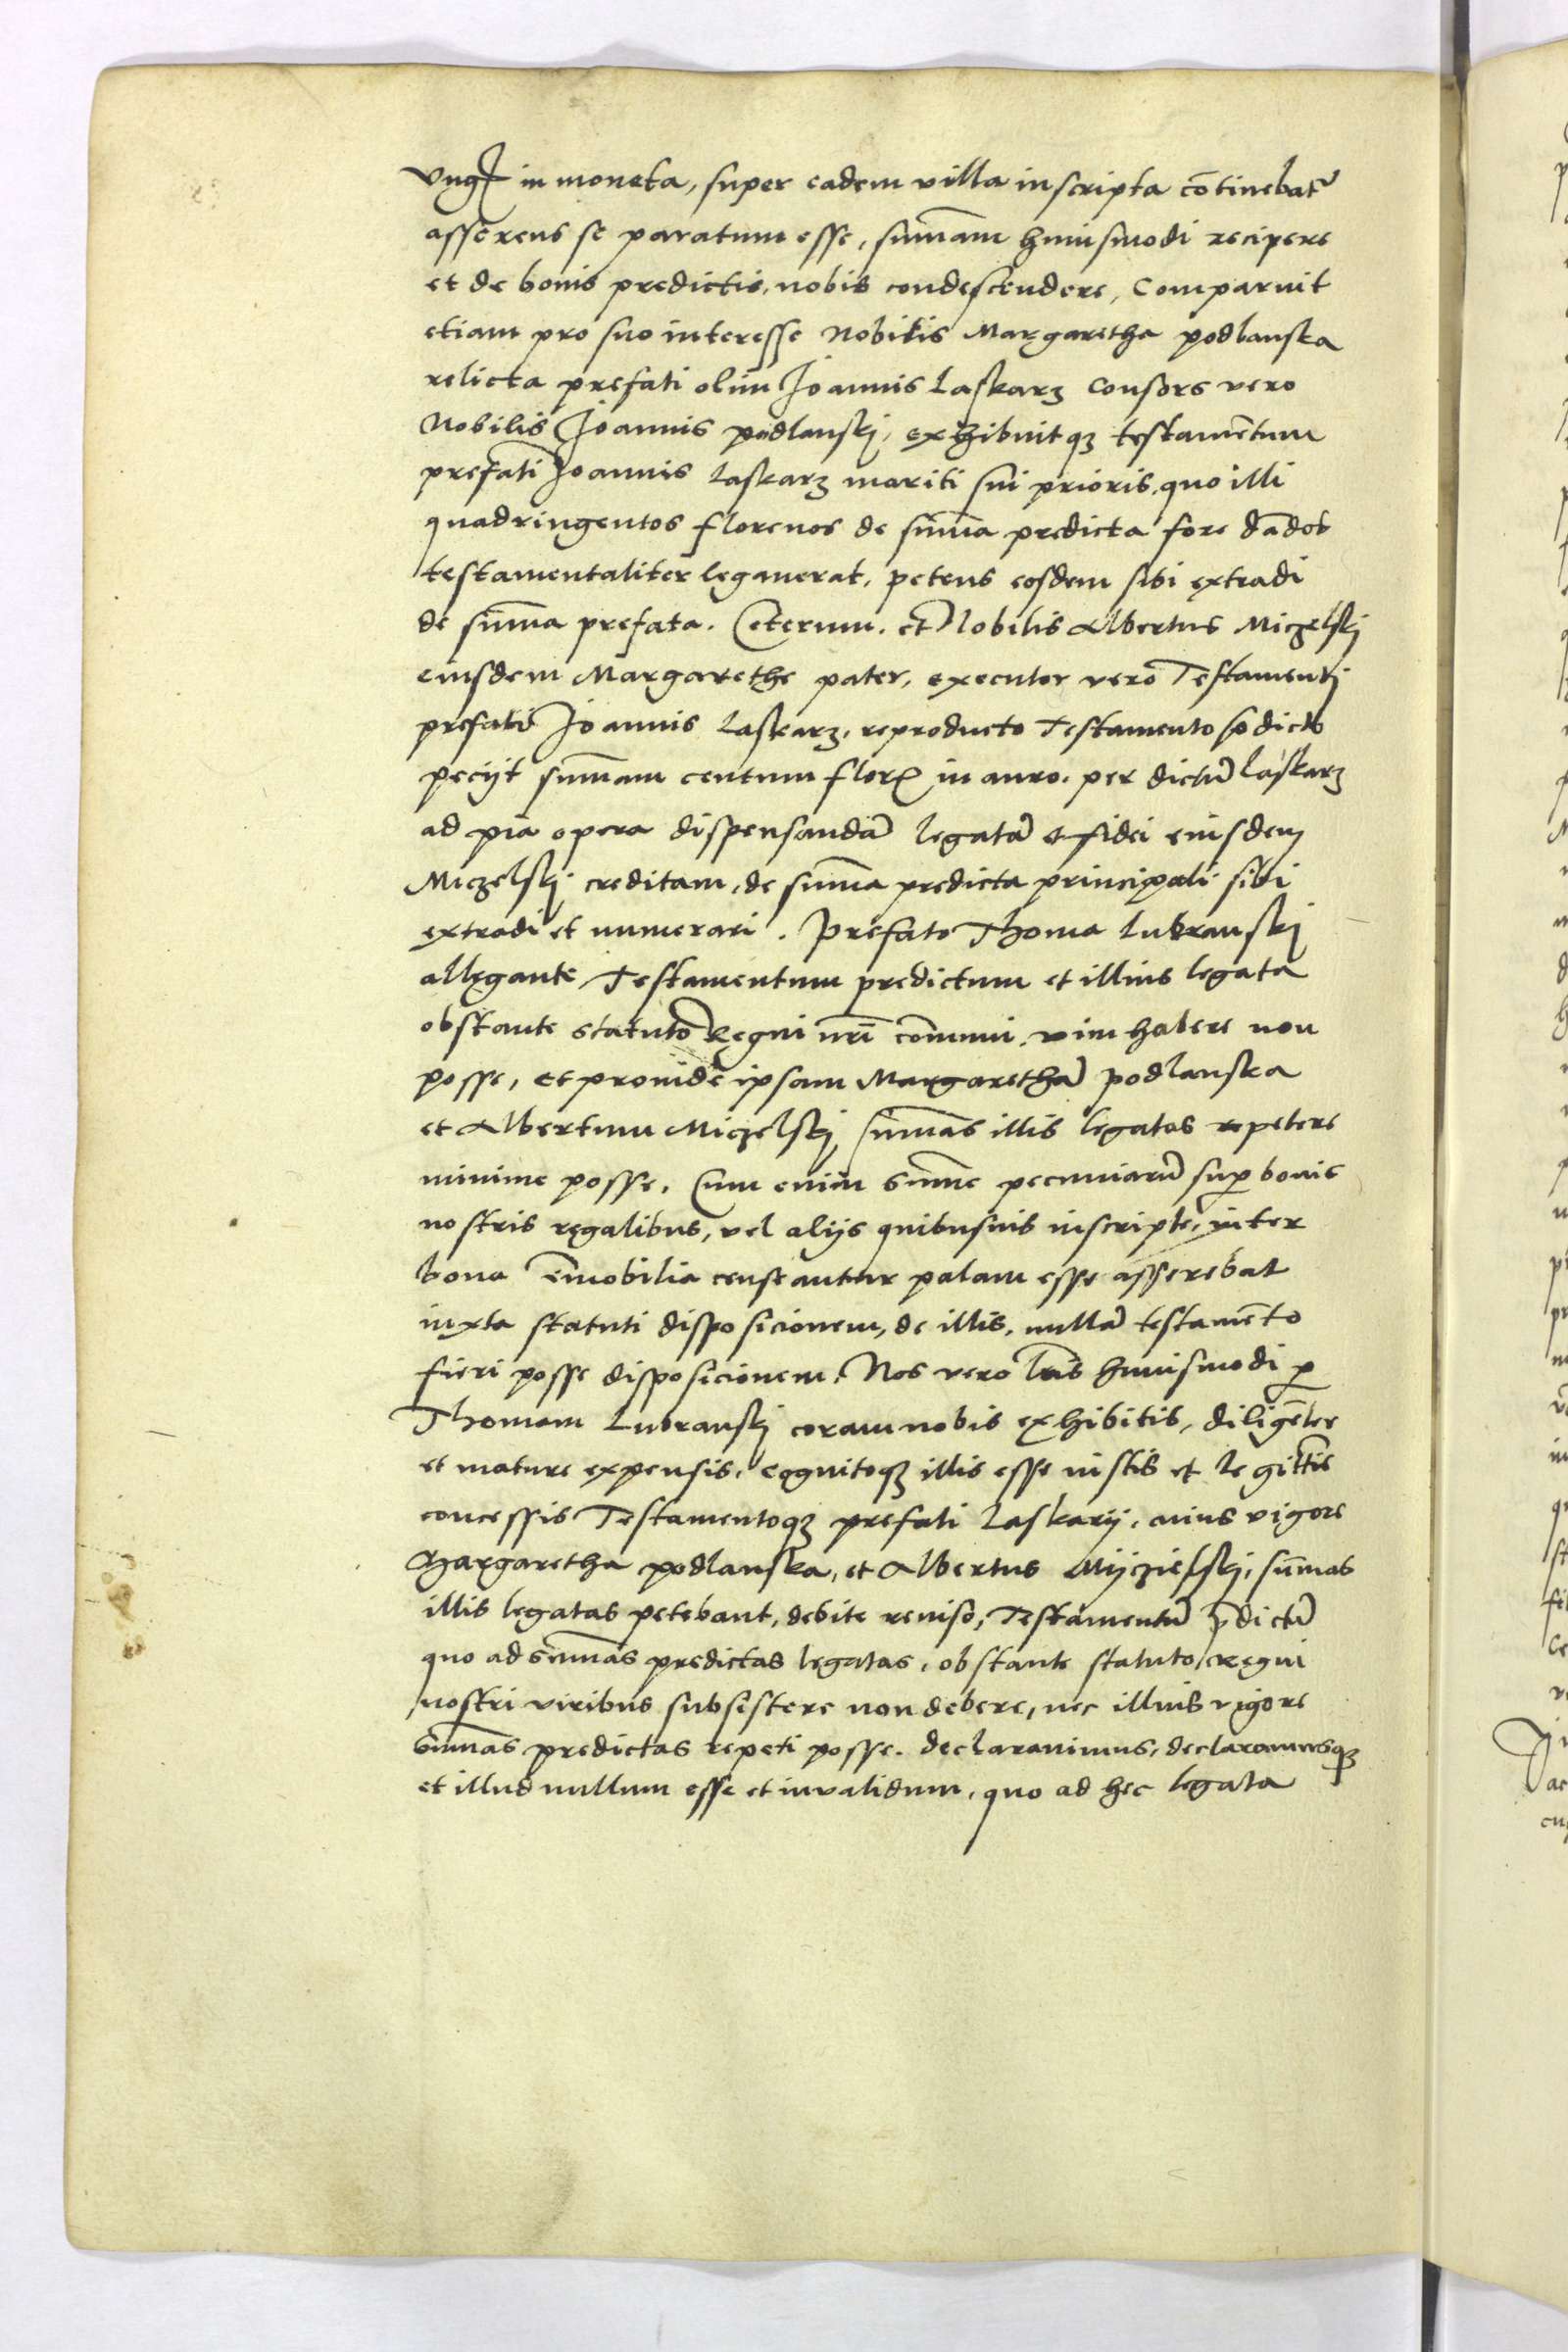 Vngꝭ in moneta, super eadem villa inscripta cōtinebatᷣ
asserens se paratum esse, sum̄am huiusmodi recipere
et de bonis predictis, nobis condescendere, Comparuit
etiam pro suo interesse Nobilis Margaretha podlanska
relicta prefati olim Joannis Laskarz consors vero
Nobilis Joannis podlanskj, exhibuitqꝫ testamētum
prefati Joannis Laskarz mariti sui prioris, quo illi
quadringentos florenos de sum̄a predicta fore dādos
testamentaliter legauerat, petens eosdem sibi extradi
de sum̄a prefata. Ceterum. et Nobilis Albertus Miczelskj
eiusdem Margarethe pater, executor vero Testamentj
prefati Joannis Laskarz, reproducto Testamento p̄dicto
pecijt sum̄am centum florꝭ in auro. per dictū Laskarz
ad pia opera dispensandā legatā et fidei eiusdem
Miczelskj creditam, de sum̄a predicta principali sibi
extradi et numerari. Prefato Thoma Lubranskj
allegante Testamentum predictum et illius legata
obstante statuto Regni nr̄i com̄uni, vim habere non
posse, et prouide ipsam Margarethā podlanska
et Albertum Miczelskj sum̄as illis legatas repetere
minime posse, Cum enim sum̄e pecuniarū suꝑ bonis
nostris regalibus, vel alijs quibusuis inscripte, inter
bona im̄obilia censeantur palam esse asserebat
iuxta statuti disposicionem, de illis, nullā testamēto
fieri posse disposicionem, Nos vero lr̄is huiusmodi ꝑ
Thomam Lubranskj coram nobis exhibitis, diligēter
et mature expensis, cognitoqꝫ illis esse iustis et legittīe
concessis Testamentoqꝫ prefati Laskarij, cuius vigore
Margaretha podlanska, et Albertus Mijczielskj, sum̄as
illis legatas petebant, debite reuiso, Testamentū p̄dictū
quo ad sum̄as predictas legatas, obstante statuto Regni
nostri viribus subsistere non debere, nec illius vigore
sum̄as predictas repeti posse. declarauimus, declaramusqꝫ
et illud nullum esse et inualidum, quo ad hec legata